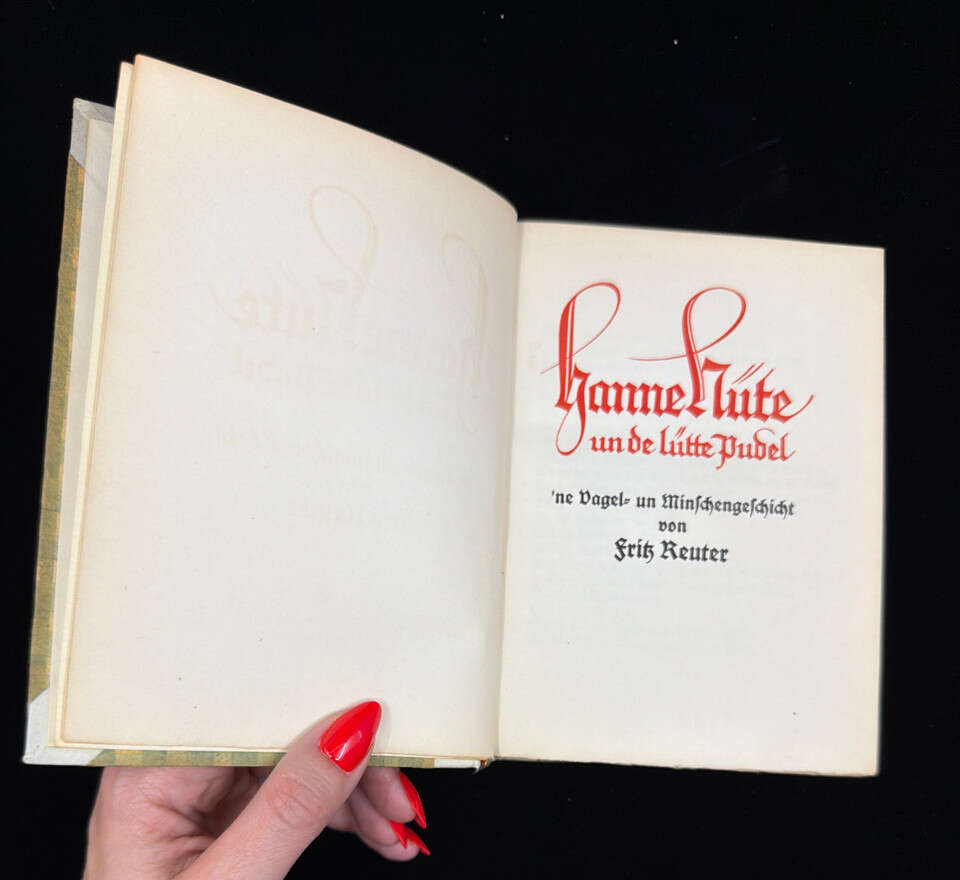 Hanne Nüte
un de lütte Pudel
'ne Vagel- un Minschengeschicht
von
Fritz Reuter